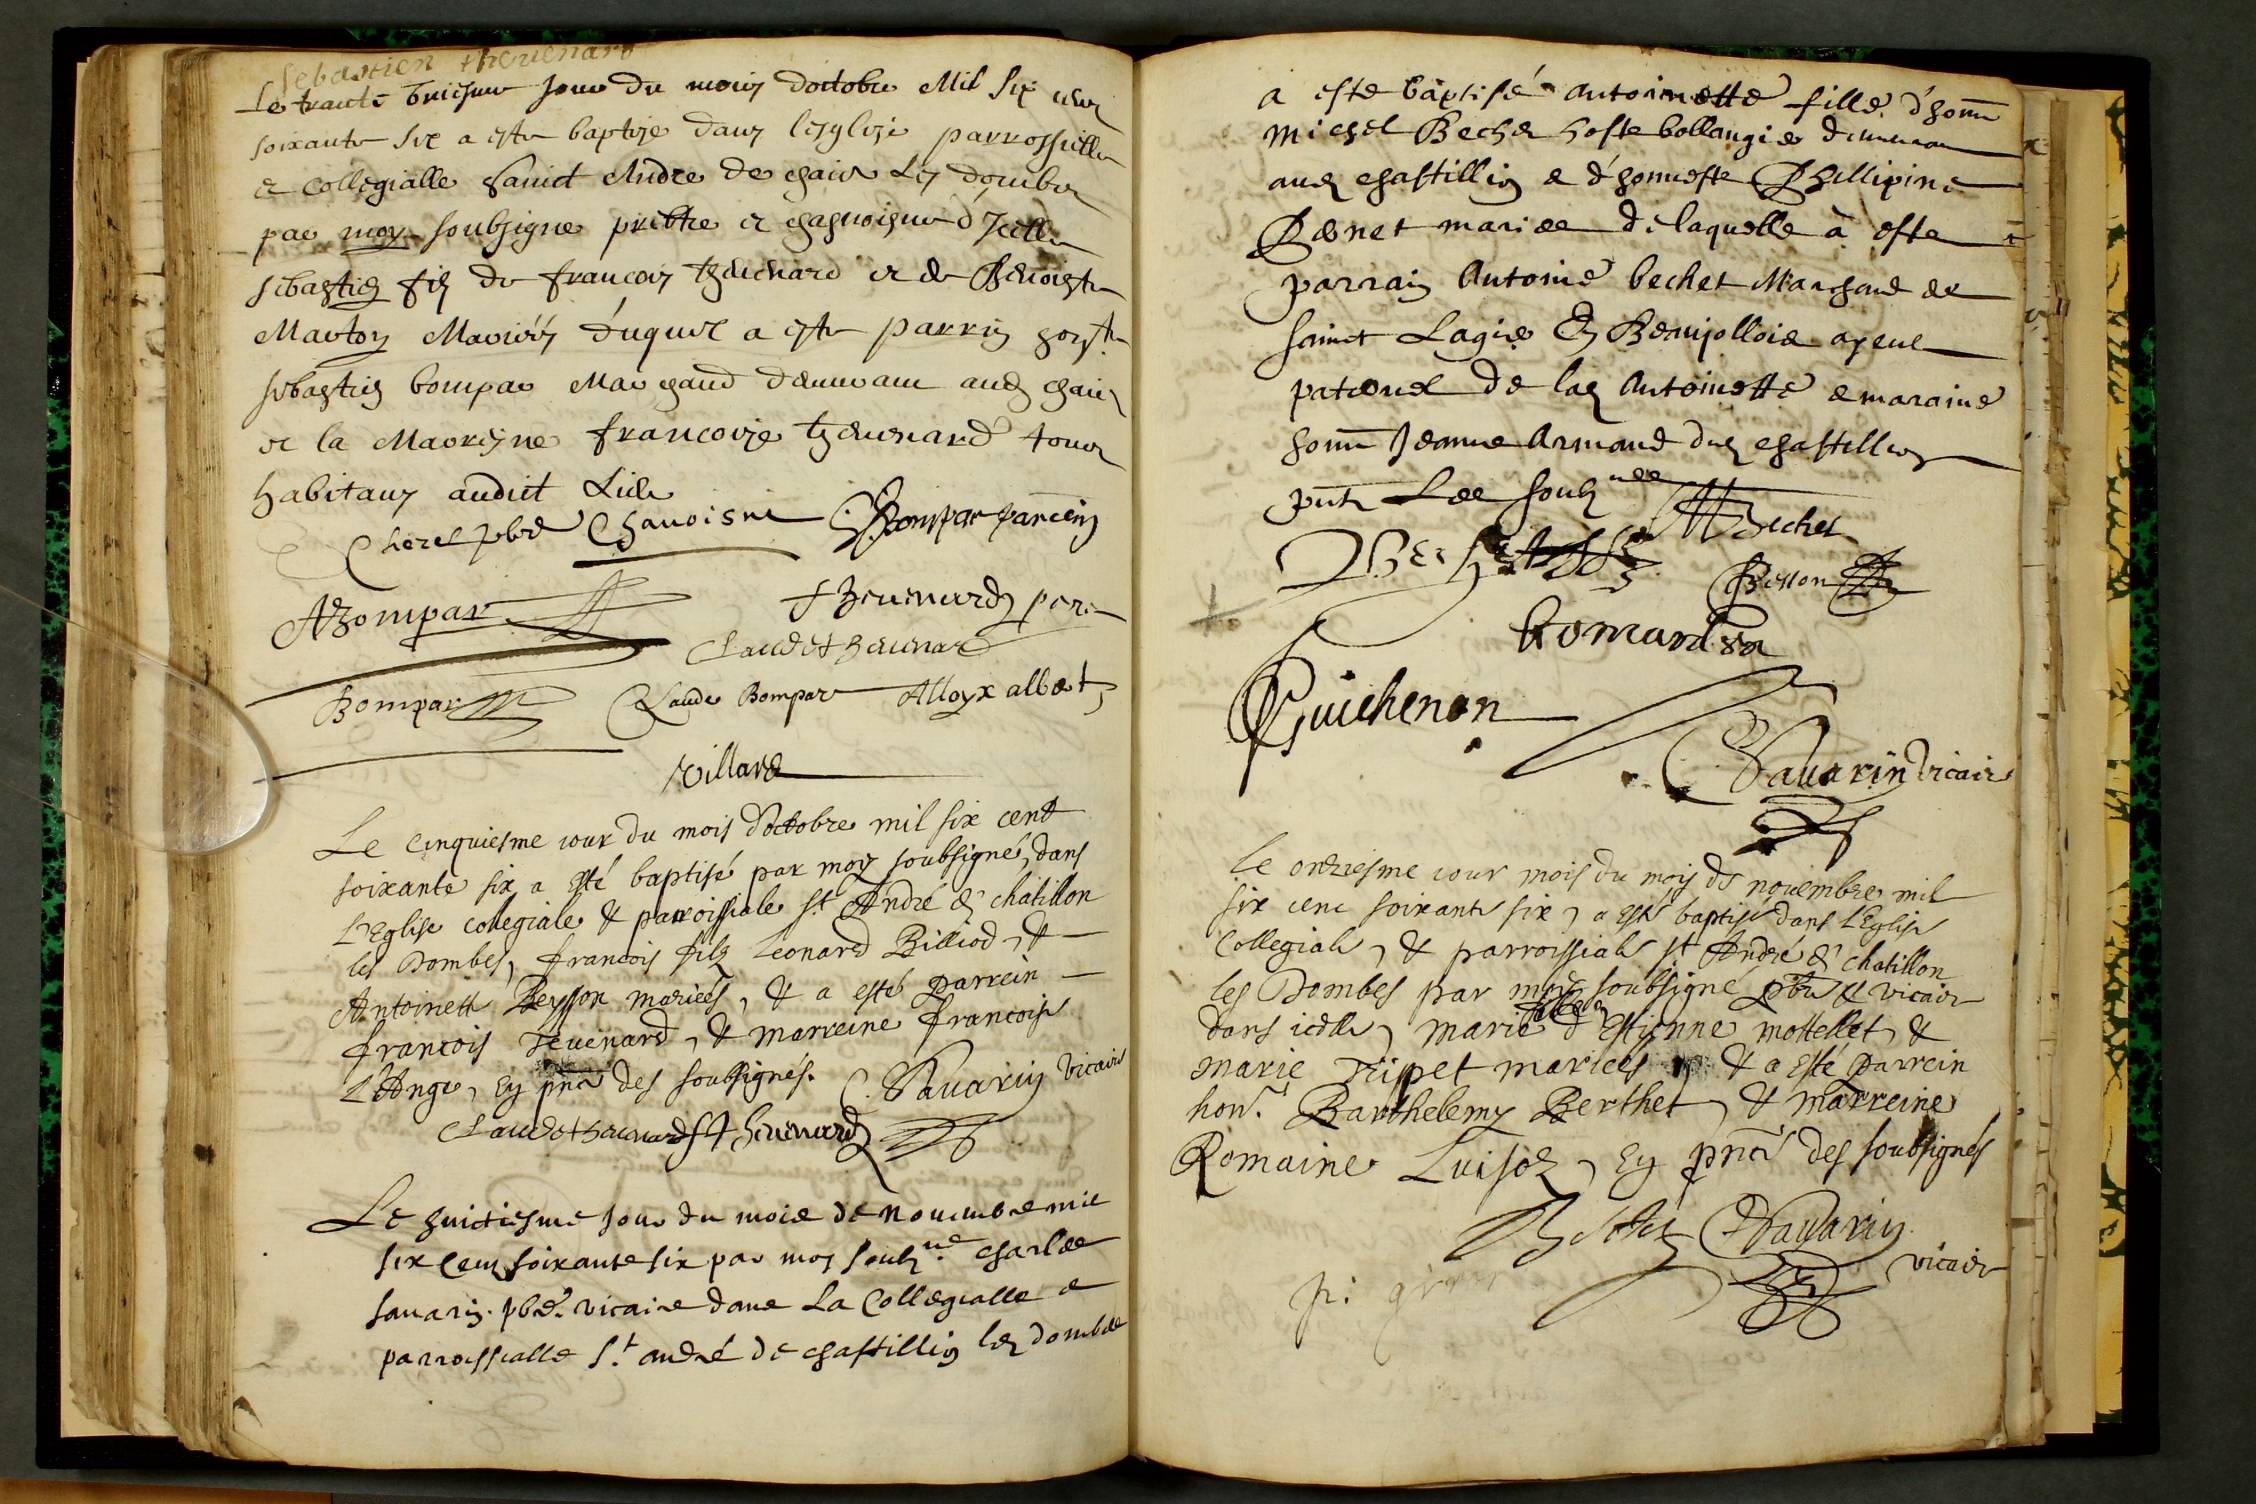 Sebastien thevenard
Le trante uniesme Jour du mois doctobre Mil Six cens
soixante six a este baptize dans lesglize parrossielle
et collegialle Sainct Andre de chaon Les dombes
par moy soubsigne prebtre et chanoisne d'Icelle
sebastien fils de francois thevenard et de Benoiste
Marton Mariés duquel a este parrin
sebastien bompar Marchand demeurant aud chaon
et la Marreyne francoize thevenard tous
habitans audict Lieu
Cherel pbre Chanoisne Bompar parrein
ABompar thevenard pere
Claude thevenard
Bompar Claude Bompar Alloyx albert
Villard
Le cinquiesme jour du mois d'octobre mil six cent
soixante six a esté baptisé par moy soubsigné, dans
L'Eglise collegiale & parroissiale st André de chatillon
les Dombes, francois filz Leonard Billiod, &
Antoinett Beysson mariés, & a esté parrein
francois Tevenard, & marreine francoise
L'Ange, Ey pnce des soubsignés. C. Savarin vicaire
Claude thevenard thevenard
Le huictiesme jour du mois de novembre mil
six Cens soixante six par moy soubzne charles
savarin. pbre. vicaire dans La Collegialle e
parrossialle S.t andré de chastillion lez dombes
a este baptisé antoinette fille d'honn
michel Bechet hoste bollangier demeurant
aud chastillion e d'honneste Phillipine
Pernet mariés de laquelle à este
parrain Antoine bechet Marchand de
sainct Lagier En Beaujollois ayeul
paternel de lad Antoinette e maraine
honn Jeanne Armand dud chastillion
pnts Les soubznes
Bechet Bechet
Besson
Romand
Guichenon
C Savarin vicaire
le onziesme jour mois du moys de novembre mil
six cenc soixante six, a esté baptisé dans l'Eglise
Collegiale, & parroissiale st André de chatillon
les Dombes par moy soubsigné pbre & vicaire
dans icelle, marie fille d'Estienne mottellet, &
marie Tripet mariés & a esté parrein
honr. Barthelemy Berthet, & marreine
Romaine Luisoz, Ey pnce des soubsignés
C Savarin
vicaire